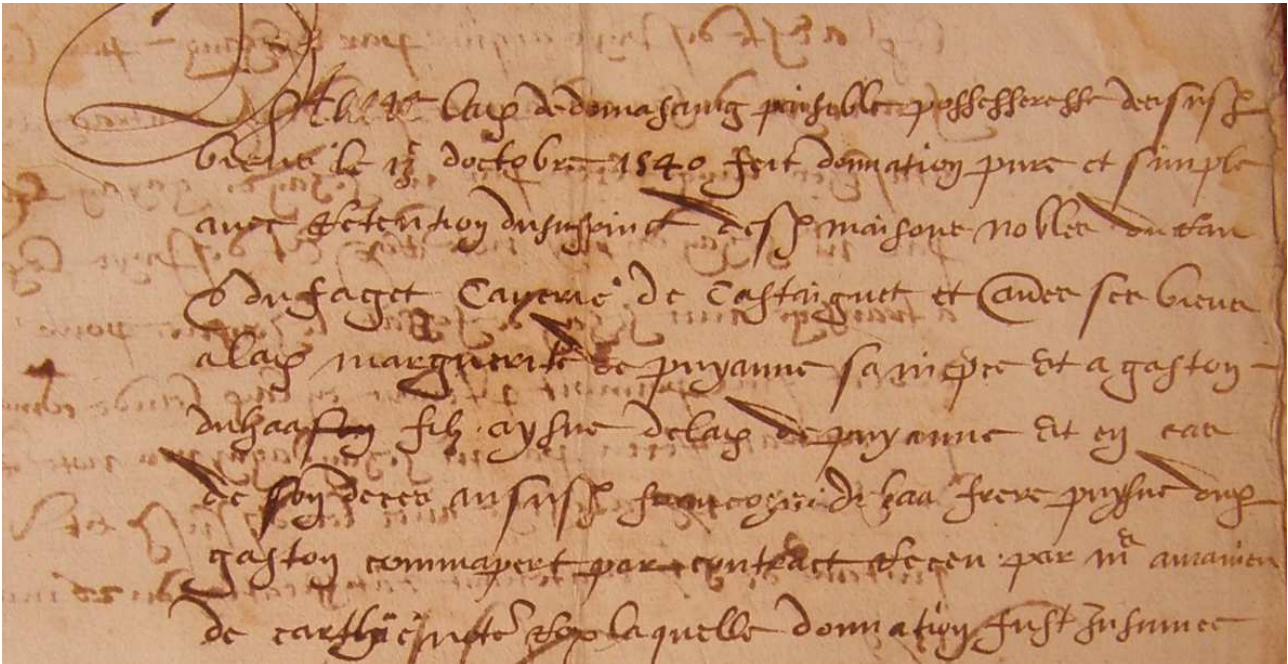 lad de domasaing paisible possesseresse desusd
biens le 13 doctobre 1540 feit donnation pure et simple
avec retention dusuffruict desd maisons nobles du tau
du faget Caverie de Castaignet et autres ses biens
a lad marguerite de puyanne sa niepce et a gaston
duhaa filz aysne delad de puyanne et en cas
de son deces aususd francoys du haa frere puysne dud
gaston comme apert par contract receu par me amanieu
de notere royal laquelle donnation fust insinuee